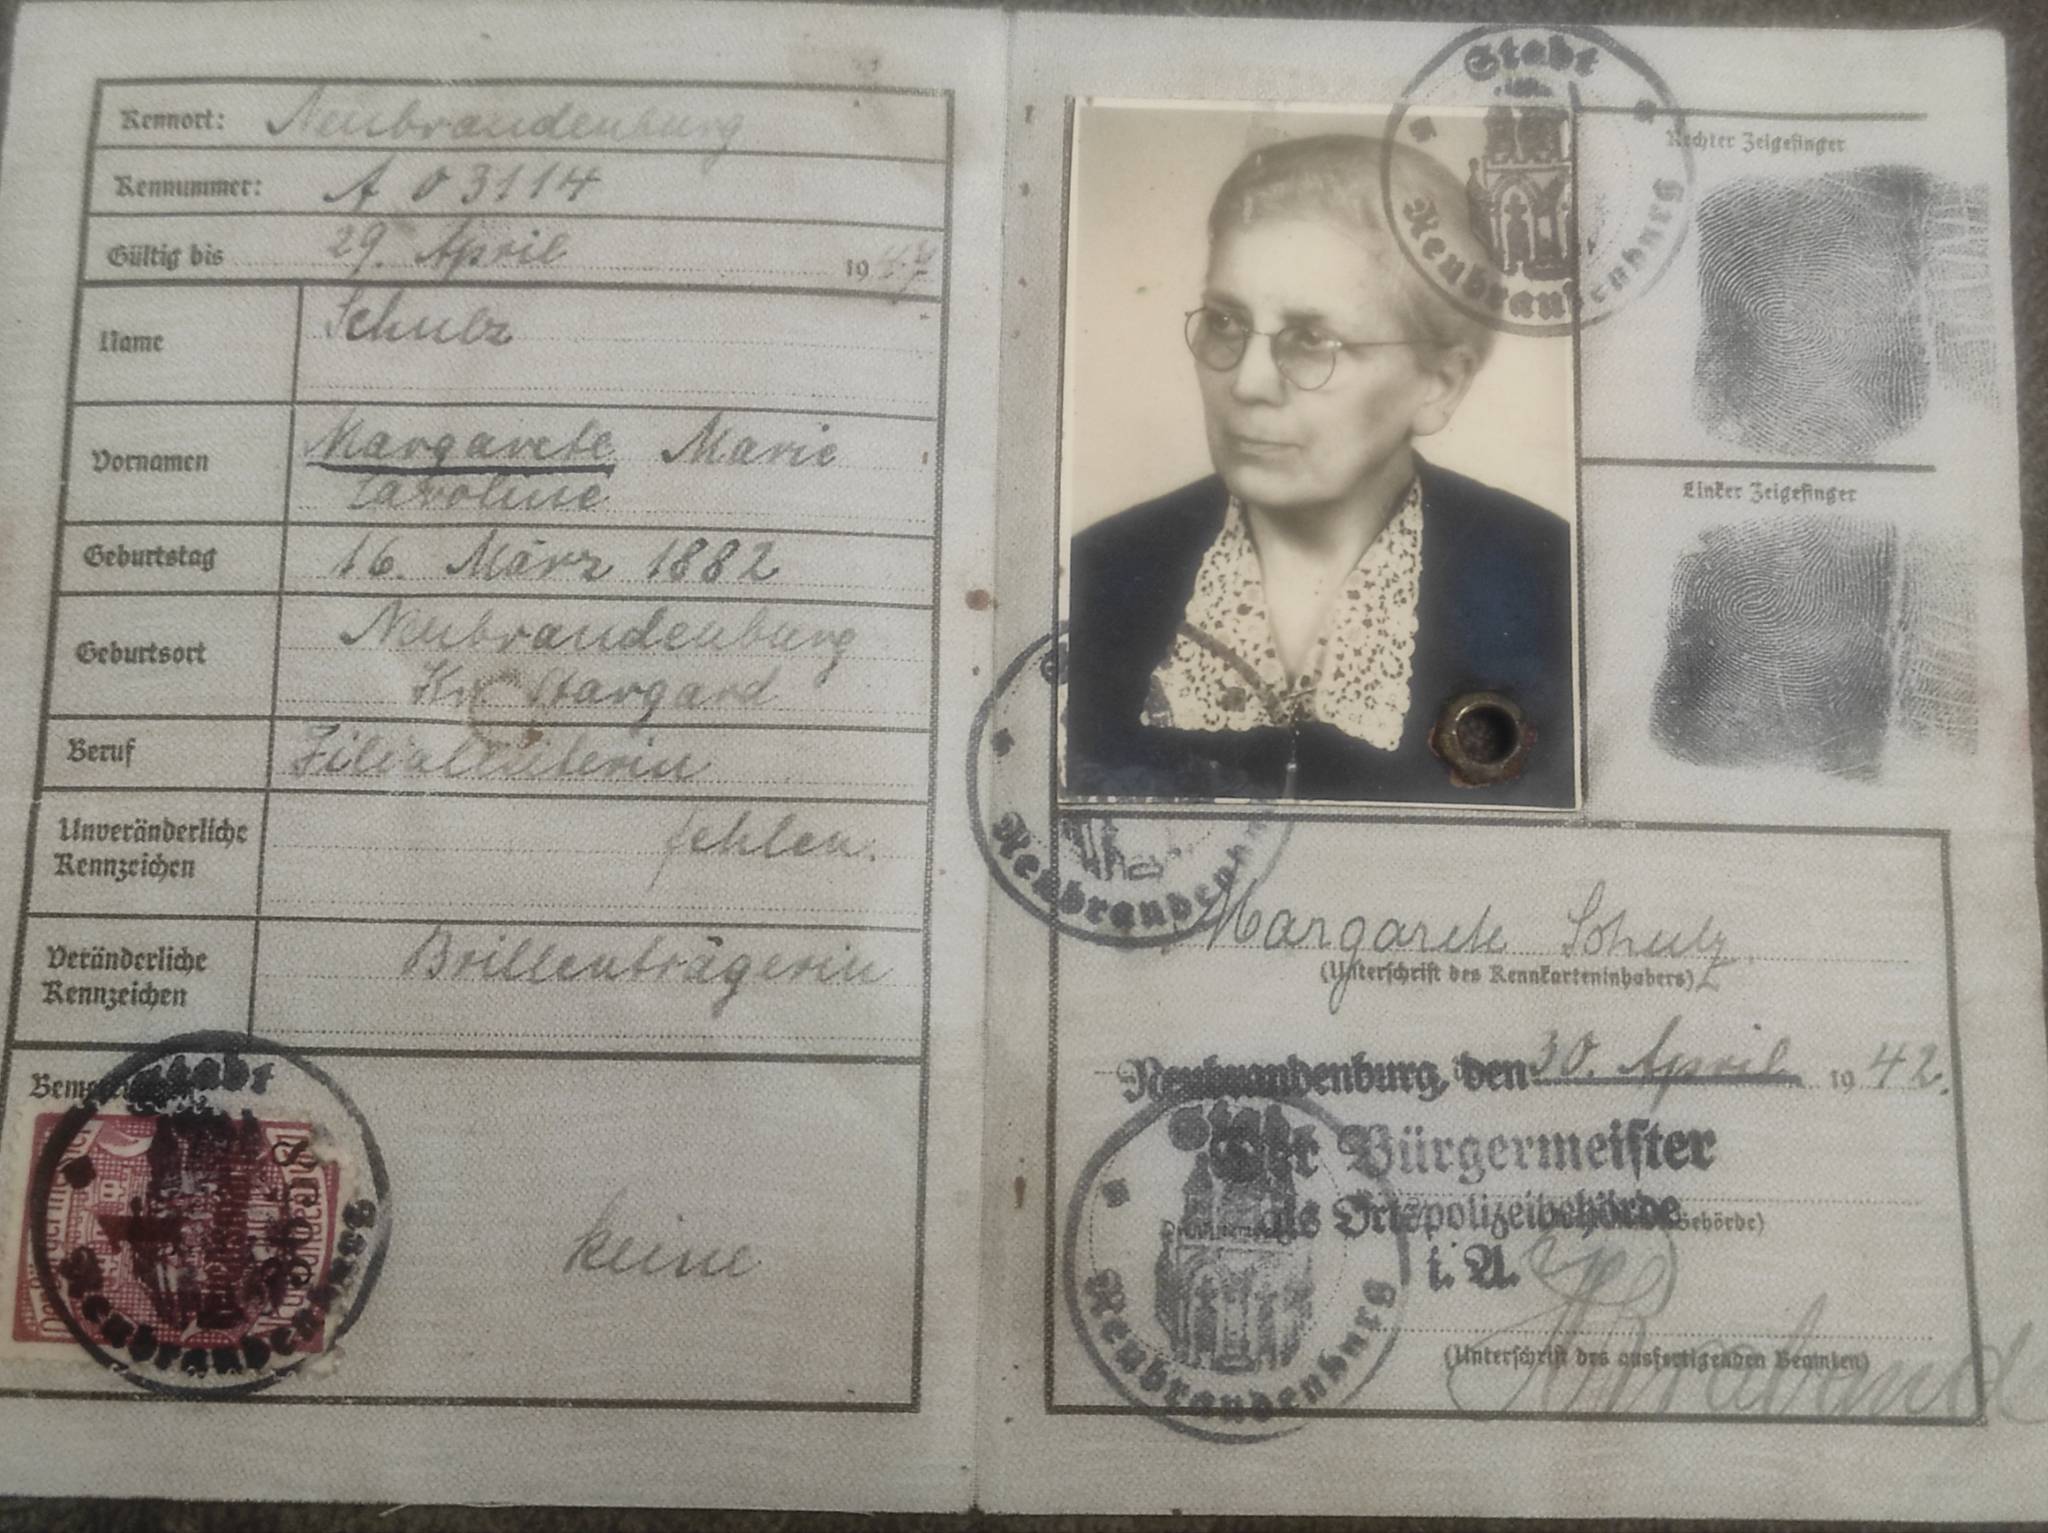 Kennort: Neubrandenburg
Kennummer: A 03114
Gültig bis 29. April 1947
Name Schulz
Vornamen Margarete Marie
Caroline
Geburtstag 16. März 1882
Geburtsort Neubrandenburg
Kr. Stargard
Beruf Filialleiterin
Unveränderliche
Kennzeichen fehlen.
Veränderliche
Kennzeichen Brillenträgerin
keine
Stadt
Neubrandenburg
Stadt
Neubrandenburg
Rechter Zeigefinger
Linker Zeigefinger
Neubrandenburg
Margarete Schulz
(Unterschrift des Kennkarteninhabers)
Neubrandenburg, den 30. April 1942.
Der Bürgermeister
als Ortspolizeibehörde
i. A.
(Unterschrift des ausfertigenden Beamten)
Stadt
Neubrandenburg